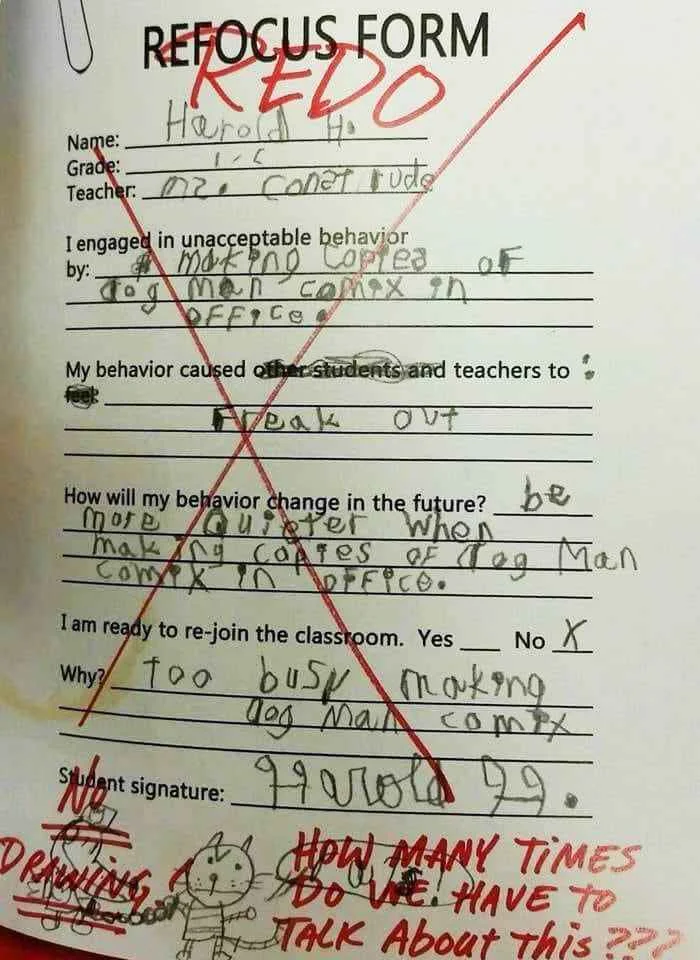 REFOCUS FORM
REDO
Name: Harold H.
Grade:
Teacher: Mz. Construde
I engaged in unacceptable behavior
by: making copies of
dog man comix in
office.
My behavior caused other students and teachers to :
feel:
Freak out
How will my behavior change in the future? be
more quieter when
making copies of Dog Man
comix in office.
I am ready to re-join the classroom. Yes ___ No X
Why? Too busy making
dog man comix
Student signature: Harold H.
NO
DRAWING!
HOW MANY TIMES
DO WE HAVE TO
TALK ABOUT THIS???